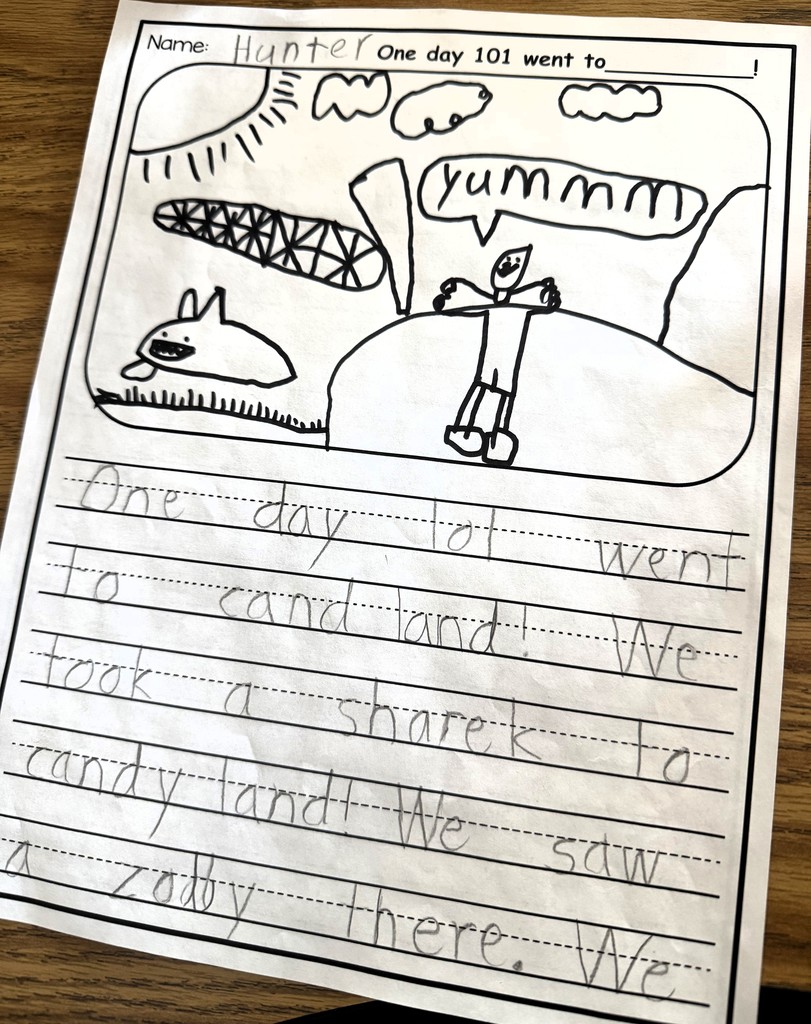 Name: Hunter One day 101 went to____________!
yummm
One day 101 went
to cand land! We
took a sharek to
candy land! We saw
a zodby there. We